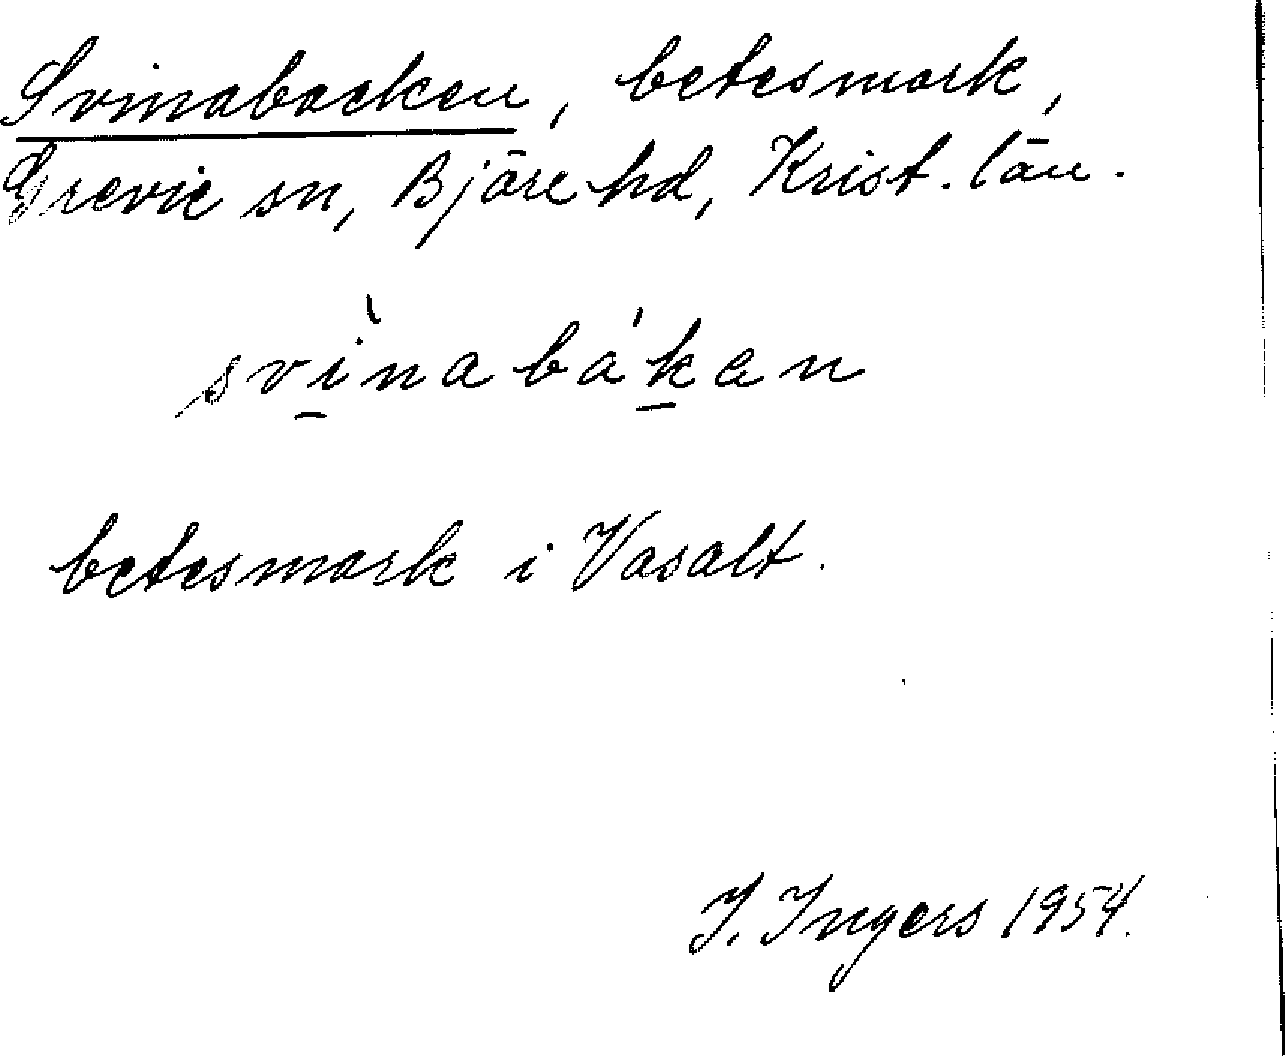 Svinabacken, betesmark,
Grevie sn, Bjäre hd, Krist. län.
svì̱nabáḵan
betesmark i Vasalt.
I. Ingers 1954.